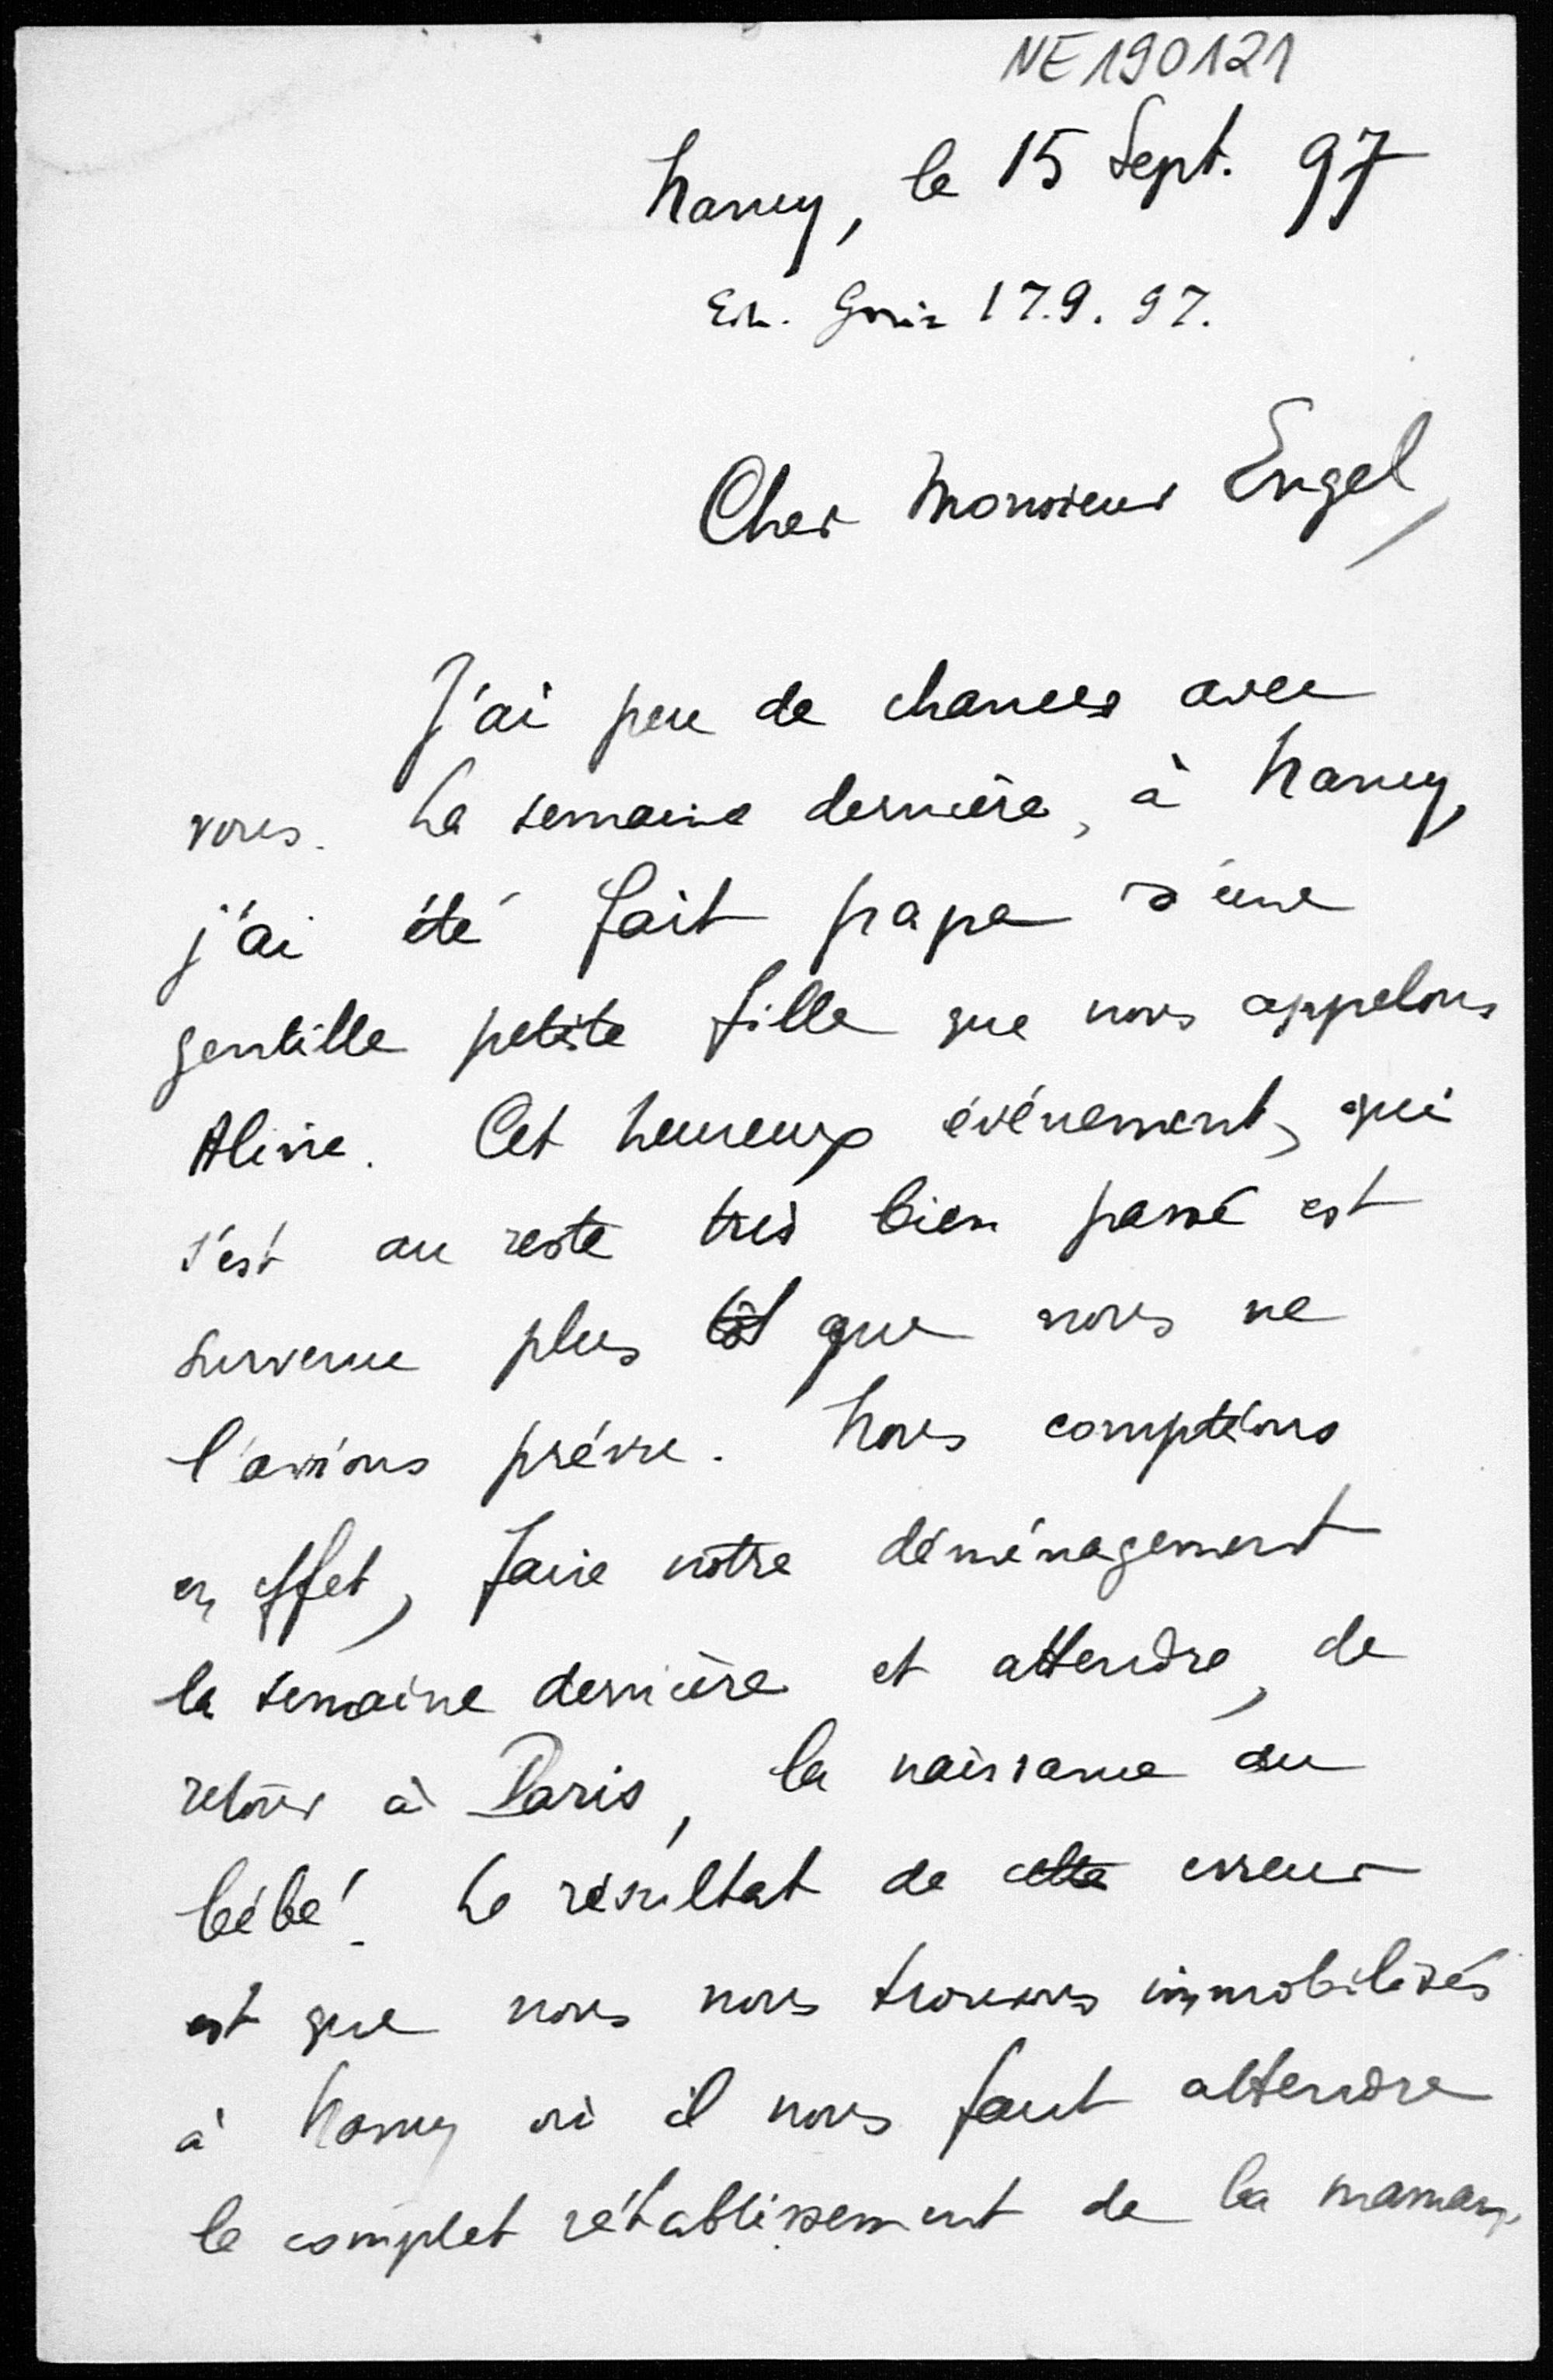 NE 190121
Nancy, le 15 Sept. 97
17.9.97.
Cher Monsieur Engel,
J'ai peu de chances avec
vous. La semaine dernière, à Nancy,
j'ai été fait papa d'une
gentille petite fille que nous appelons
Aline. Cet heureux événement, qui
s'est au reste très bien passé est
survenu plus tôt que nous ne
l'avions prévu. Nous comptions
en effet, faire notre déménagement
la semaine dernière et attendre, de
retour à Paris, la naissance du
bébé! Le résultat de cette erreur
est que nous nous trouvons immobilisés
à Nancy où il nous faut attendre
le complet rétablissement de la maman,